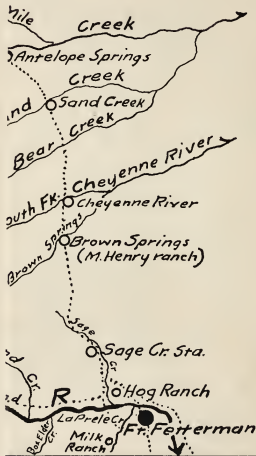 Mile
Creek
Antelope Springs
Creek
nd
Sand Creek
Bear Creek
outh Fk. Cheyenne River
Cheyenne River
Brown Springs
Brown Springs
(M. Henry ranch)
Sage Cr.
Sage Cr. Sta.
nd Cr.
R
Hog Ranch
La Prele Cr.
Ft. Fetterman
Box Elder Cr.
Milk Ranch